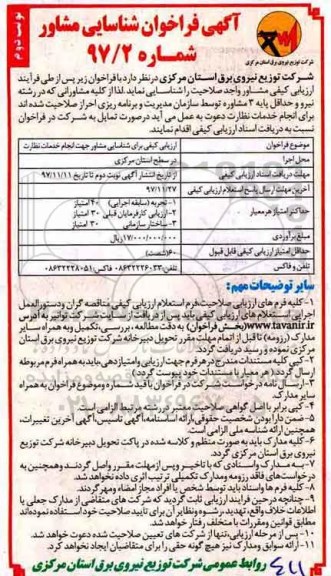 نوبت دوم
آگهی فراخوان شناسایی مشاور
شماره ۹۷/۲
شرکت توزیع نیروی برق استان مرکزی
شرکت توزیع نیروی برق استان مرکزی در نظر دارد با فراخوان زیر پس از طی فرآیند
ارزیابی کیفی مشاور واجد صلاحیت را شناسایی نماید. لذا از کلیه مشاورانی که در رشته
نیرو و حداقل پایه ۳ مشاوره توسط سازمان مدیریت و برنامه ریزی احراز صلاحیت شده اند
برای انجام خدمات نظارت دعوت به عمل می آید در صورت تمایل به شرکت در فراخوان
نسبت به دریافت اسناد ارزیابی کیفی اقدام نمایند.
موضوع فراخوان ارزیابی کیفی برای شناسایی مشاور جهت انجام خدمات نظارت
محل اجرا در سطح استان مرکزی
مهلت دریافت اسناد ارزیابی کیفی از تاریخ انتشار آگهی نوبت دوم تا تاریخ ۹۷/۱۱/۱۱
آخرین مهلت ارسال پاسخ استعلام ارزیابی کیفی ۹۷/۱۱/۲۷
حداکثر امتیاز هر معیار ۱- تجربه (سابقه اجرایی) ۴۰ امتیاز
۲- ارزیابی کارفرمایان قبلی ۳۰ امتیاز
۳- ساختار سازمانی ۳۰ امتیاز
مبلغ برآوردی ۱۷/۰۰۰/۰۰۰/۰۰۰ ریال
حداقل امتیاز ارزیابی کیفی قابل قبول ۶۰ (شصت)
تلفن و فاکس تلفن: ۰۸۶۳۲۲۲۶۰۳۳ فاکس: ۰۸۶۳۲۲۲۸۰۵۱
سایر توضیحات مهم:
۱- کلیه فرم های ارزیابی صلاحیت، فرم استعلام ارزیابی کیفی مناقصه گران و دستورالعمل
اجرایی استعلام های ارزیابی کیفی باید پس از دریافت از سایت شرکت توانیر به آدرس
www.tavanir.ir (بخش فراخوان) به دقت مطالعه، بررسی، تکمیل و به همراه سایر
مدارک (رزومه) تا قبل از اتمام مهلت مقرر تحویل دبیرخانه شرکت توزیع نیروی برق استان
مرکزی نموده و رسید دریافت گردد.
۲- کلیه مستندات مندرج در هر فرم جهت ارزیابی و امتیازدهی باید به همراه فرم مربوطه
ارسال گردد (هر معیار با مستندات خود پیوست گردد)
۳- ارسال نامه درخواست شرکت در فراخوان با قید شماره و موضوع فراخوان به همراه
سایر مدارک.
۴- کپی برابر با اصل گواهی صلاحیت معتبر در رشته مرتبط الزامی است.
۵- ضمن دارا بودن شخصیت حقوقی، ارائه اساسنامه، آگهی تاسیس، آگهی آخرین تغییرات،
همچنین ارائه شناسه ملی الزامی است.
۶- کلیه مدارک باید به صورت منظم و کلاسه شده در پاکت تحویل دبیرخانه شرکت توزیع
نیروی برق استان مرکزی گردد.
۷- به مدارک و اسنادی که با تاخیر و پس از مهلت مقرر واصل گردند و همچنین به
درخواست های فاقد رزومه و مدارک تکمیلی ترتیب اثری داده نخواهد شد.
۸- کلیه فرم ها و اسناد باید توسط شخص یا افراد مجاز امضاء و مهر گردند.
۹- چنانچه در حین فرآیند ارزیابی ثابت گردید که شرکت های متقاضی از مدارک جعلی یا
اطلاعات خلاف واقع، تهدید، رشوه و نظایر آن برای تایید صلاحیت خود استفاده نموده اند
مطابق قوانین و مقررات با متخلف رفتار خواهد شد.
۱۰- پس از مرحله ارزیابی، تنها از شرکت های تعیین صلاحیت شده دعوت خواهد شد.
۱۱- ارائه سوابق و مدارک نیز هیچ گونه حقی را برای متقاضیان ایجاد نخواهد کرد.
روابط عمومی شرکت توزیع نیروی برق استان مرکزی